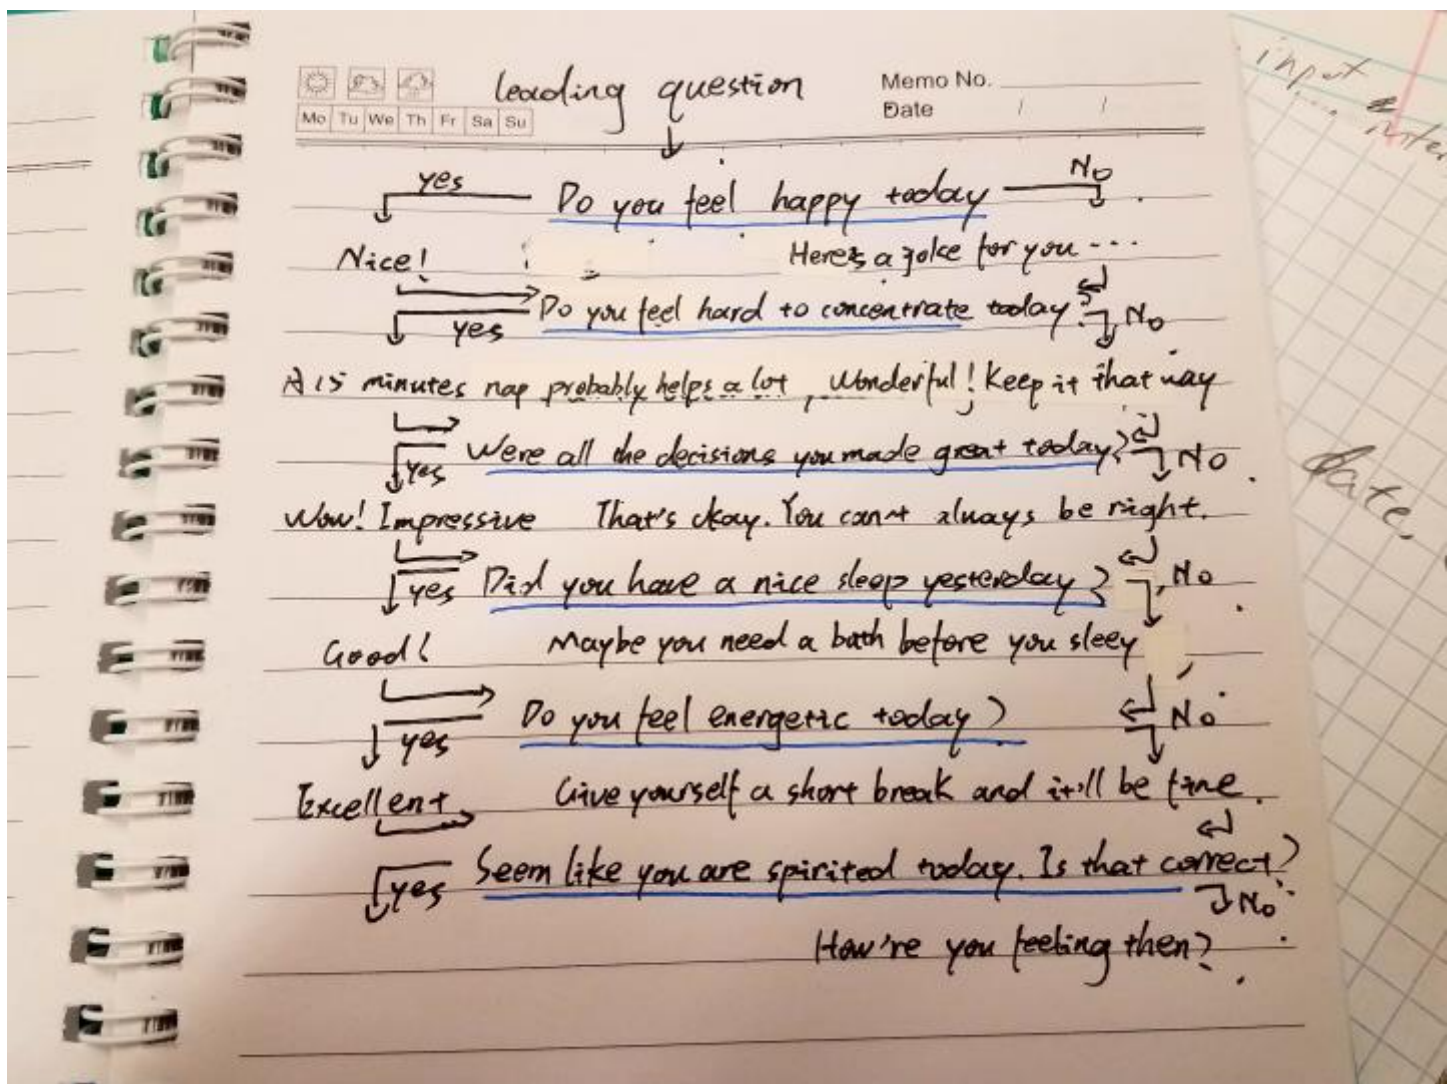 leading question
Memo No.
Date / /
Mo Tu We Th Fr Sa Su
yes Do you feel happy today No
Nice! Here's a joke for you ...
yes Do you feel hard to concentrate today? No
A 15 minutes nap probably helps a lot , Wonderful! Keep it that way
yes Were all the decisions you made great today? No
Wow! Impressive That's okay. You can't always be right.
yes Did you have a nice sleep yesterday? No
Good! Maybe you need a bath before you sleep
yes Do you feel energetic today? No
Excellent. Give yourself a short break and it'll be fine.
yes Seem like you are spirited today. Is that correct? No
How're you feeling then?
input
Date,